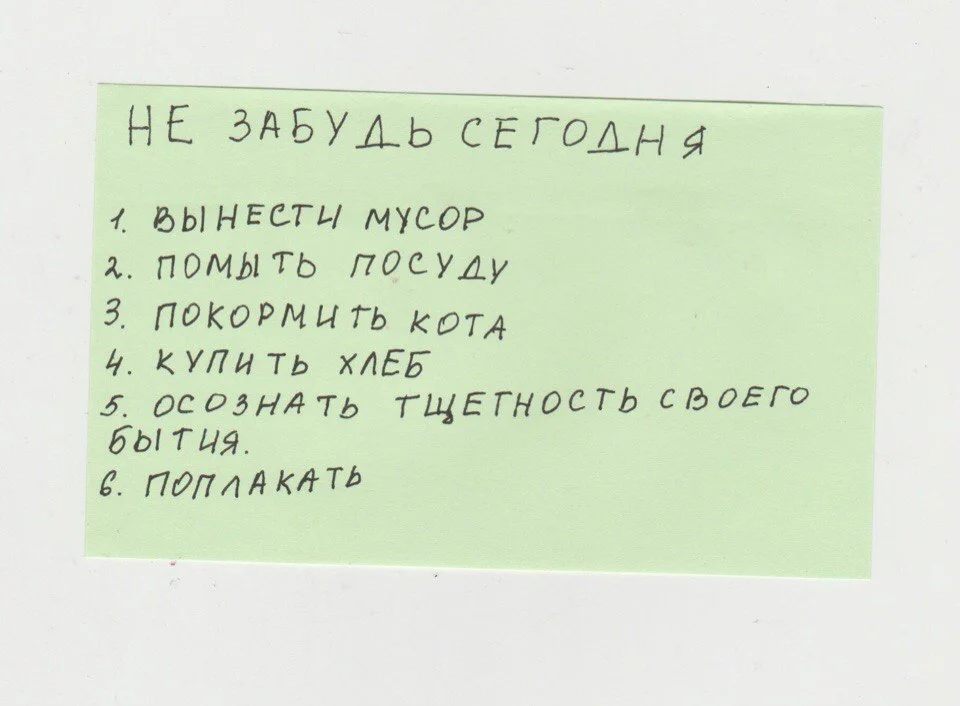 НЕ ЗАБУДЬ СЕГОДНЯ
1. ВЫНЕСТИ МУСОР
2. ПОМЫТЬ ПОСУДУ
3. ПОКОРМИТЬ КОТА
4. КУПИТЬ ХЛЕБ
5. ОСОЗНАТЬ ТЩЕТНОСТЬ СВОЕГО
БЫТИЯ.
6. ПОПЛАКАТЬ